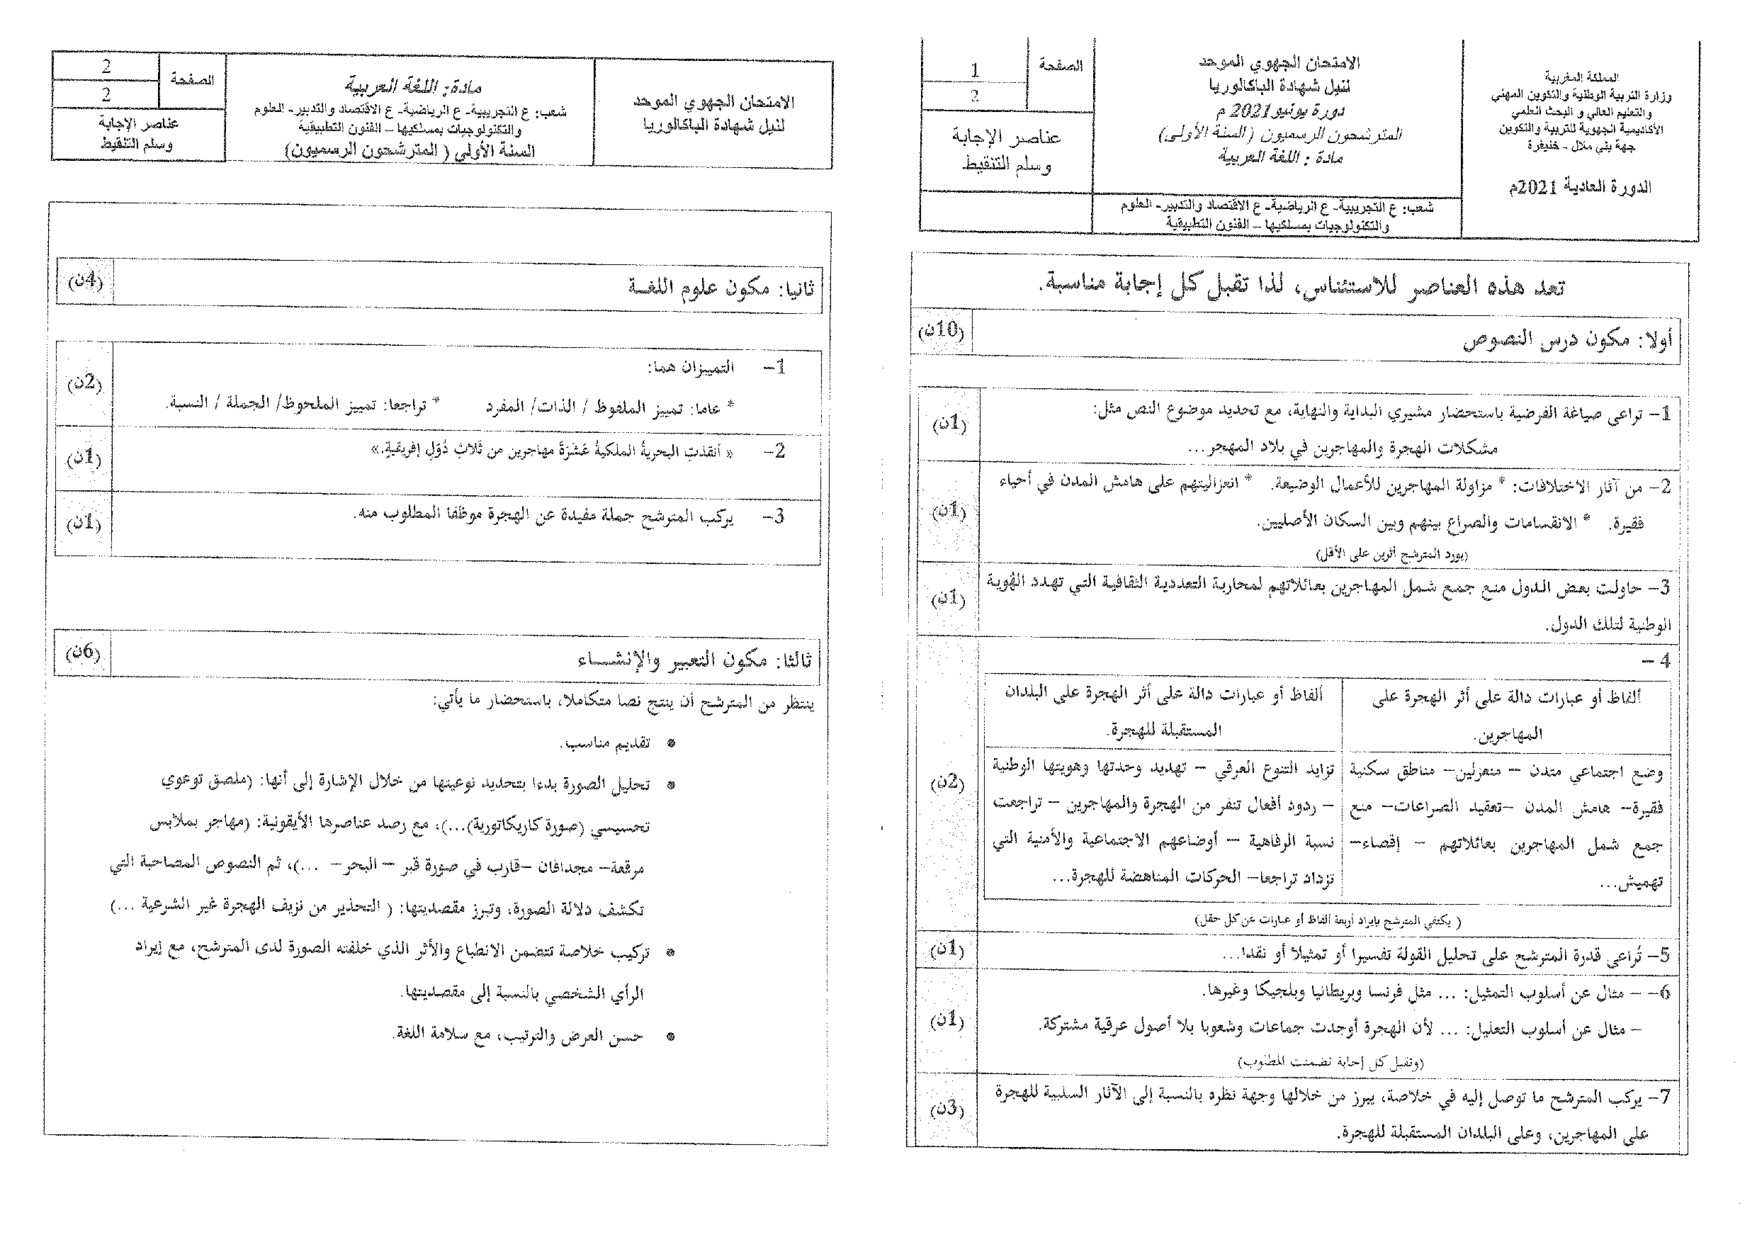 المملكة المغربية
وزارة التربية الوطنية والتكوين المهني
والتعليم العالي و البحث العلمي
الأكاديمية الجهوية للتربية والتكوين
جهة بني ملال - خنيفرة
الدورة العادية 2021م
الامتحان الجهوي الموحد
لنيل شهادة الباكالوريا
دورة يونيو 2021 م
المترشحون الرسميون (السنة الأولى)
مادة : اللغة العربية
شعب: ع التجريبية- ع الرياضية- ع الاقتصاد والتدبير- العلوم
والتكنولوجيات بمسلكيها – الفنون التطبيقية
الصفحة
1
2
عناصر الإجابة
وسلم التنقيط
تعد هذه العناصر للاستئناس، لذا تقبل كل إجابة مناسبة.
أولا: مكون درس النصوص (10ن)
1- تراعى صياغة الفرضية باستحضار مشيري البداية والنهاية، مع تحديد موضوع النص مثل: (1ن)
مشكلات الهجرة والمهاجرين في بلاد المهجر...
2- من آثار الاختلافات: * مزاولة المهاجرين للأعمال الوضيعة. * انعزاليتهم على هامش المدن في أحياء (1ن)
فقيرة. * الانقسامات والصراع بينهم وبين السكان الأصليين.
(يورد المترشح أثرين على الأقل)
3- حاولت بعض الدول منع جمع شمل المهاجرين بعائلاتهم لمحاربة التعددية الثقافية التي تهدد الهُوية (1ن)
الوطنية لتلك الدول.
4 -
ألفاظ أو عبارات دالة على أثر الهجرة على
المهاجرين.
ألفاظ أو عبارات دالة على أثر الهجرة على البلدان
المستقبلة للهجرة.
وضع اجتماعي متدن – منعزلين– مناطق سكنية
فقيرة– هامش المدن –تعقيد الصراعات– منع
جمع شمل المهاجرين بعائلاتهم – إقصاء–
تهميش...
تزايد التنوع العرقي – تهديد وحدتها وهويتها الوطنية
– ردود أفعال تنفر من الهجرة والمهاجرين – تراجعت
نسبة الرفاهية – أوضاعهم الاجتماعية والأمنية التي
تزداد تراجعا– الحركات المناهضة للهجرة...
(2ن)
( يكتفي المترشح بإيراد أربعة ألفاظ أو عبارات عن كل حقل)
5- تُراعى قدرة المترشح على تحليل القولة تفسيرا أو تمثيلا أو نقدا... (1ن)
6- – مثال عن أسلوب التمثيل: ... مثل فرنسا وبريطانيا وبلجيكا وغيرها.
– مثال عن أسلوب التعليل: ... لأن الهجرة أوجدت جماعات وشعوبا بلا أصول عرقية مشتركة. (1ن)
(وتقبل كل إجابة تضمنت المطلوب)
7- يركب المترشح ما توصل إليه في خلاصة، يبرز من خلالها وجهة نظره بالنسبة إلى الآثار السلبية للهجرة (3ن)
على المهاجرين، وعلى البلدان المستقبلة للهجرة.
الامتحان الجهوي الموحد
لنيل شهادة الباكالوريا
مادة: اللغة العربية
شعب: ع التجريبية- ع الرياضية- ع الاقتصاد والتدبير- العلوم
والتكنولوجيات بمسلكيها – الفنون التطبيقية
السنة الأولى ( المترشحون الرسميون)
الصفحة
2
2
عناصر الإجابة
وسلم التنقيط
ثانيا: مكون علوم اللغـة (4ن)
1- التمييزان هما: (2ن)
* عاما: تمييز الملفوظ / الذات/ المفرد * تراجعا: تمييز الملحوظ/ الجملة / النسبة.
2- « أنقذتِ البحريةُ الملكيةُ عَشَرَةَ مهاجرين من ثَلاثِ دُوَلٍ إفريقيةٍ.» (1ن)
3- يركب المترشح جملة مفيدة عن الهجرة موظفا المطلوب منه. (1ن)
ثالثا: مكون التعبير والإنشـــاء (6ن)
ينتظر من المترشح أن ينتج نصا متكاملا، باستحضار ما يأتي:
• تقديم مناسب.
• تحليل الصورة بدءا بتحديد نوعيتها من خلال الإشارة إلى أنها: (ملصق توعوي
تحسيسي (صورة كاريكاتورية)...)، مع رصد عناصرها الأيقونية: (مهاجر بملابس
مرقعة– مجدافان –قارب في صورة قبر – البحر– ...)، ثم النصوص المصاحبة التي
تكشف دلالة الصورة، وتبرز مقصديتها: ( التحذير من نزيف الهجرة غير الشرعية ...)
• تركيب خلاصة تتضمن الانطباع والأثر الذي خلفته الصورة لدى المترشح، مع إيراد
الرأي الشخصي بالنسبة إلى مقصديتها.
• حسن العرض والترتيب، مع سلامة اللغة.